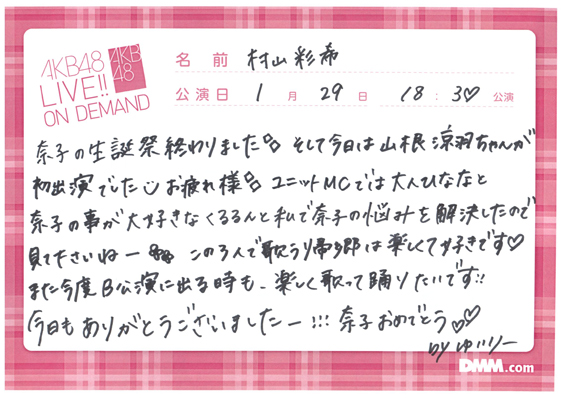 AKB48
LIVE!!
ON DEMAND
AKB
48
名前 村山彩希
公演日 1月29日 18:30公演
奈子の生誕祭終わりました そして今日は山根涼羽ちゃんが
初出演でした お疲れ様 ユニットMCでは大人ひななと
奈子の事が大好きなくるるんと私で奈子の悩みを解決したので
見てくださいねー この3人で歌う帰郷は楽しくて好きです♡
また今度B公演に出る時も、楽しく歌って踊りたいです!!
今日もありがとうございましたー!!! 奈子おめでとう♡♡
by ゆいりー
DMM.com